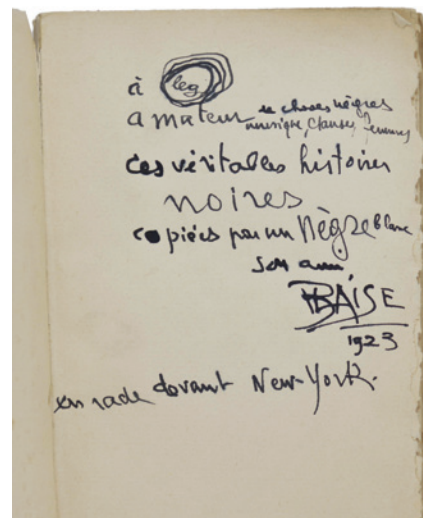 à leg
amateur de choses nègres
musique, danses, femmes
ces véritables histoires
noires
copiées par un Nègre blanc
son ami
BLAISE
1923
en rade devant New-York.